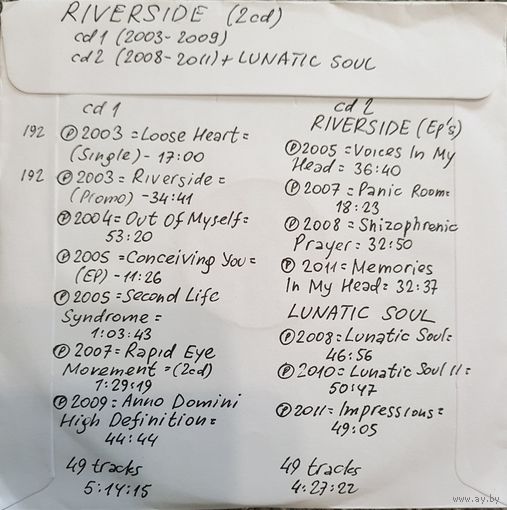 RIVERSIDE (2cd)
cd1 (2003-2009)
cd2 (2008-2011) + LUNATIC SOUL
cd1
192 Ⓟ 2003 = Loose Heart =
(Single) - 17:00
192 Ⓟ 2003 = Riverside =
(Promo) - 34:41
Ⓟ 2004 = Out Of Myself =
53:20
Ⓟ 2005 = Conceiving You =
(EP) - 11:26
Ⓟ 2005 = Second Life
Syndrome =
1:03:43
Ⓟ 2007 = Rapid Eye
Movement = (2cd)
1:29:19
Ⓟ 2009 = Anno Domini
High Definition =
44:44
49 tracks
5:14:15
cd2
RIVERSIDE (Ep's)
Ⓟ 2005 = Voices In My
Head = 36:40
Ⓟ 2007 = Panic Room =
18:23
Ⓟ 2008 = Shizophrenic
Prayer = 32:50
Ⓟ 2011 = Memories
In My Head = 32:37
LUNATIC SOUL
Ⓟ 2008 = Lunatic Soul =
46:56
Ⓟ 2010 = Lunatic Soul II =
50:47
Ⓟ 2011 = Impressions =
49:05
49 tracks
4:27:22
www.ay.by